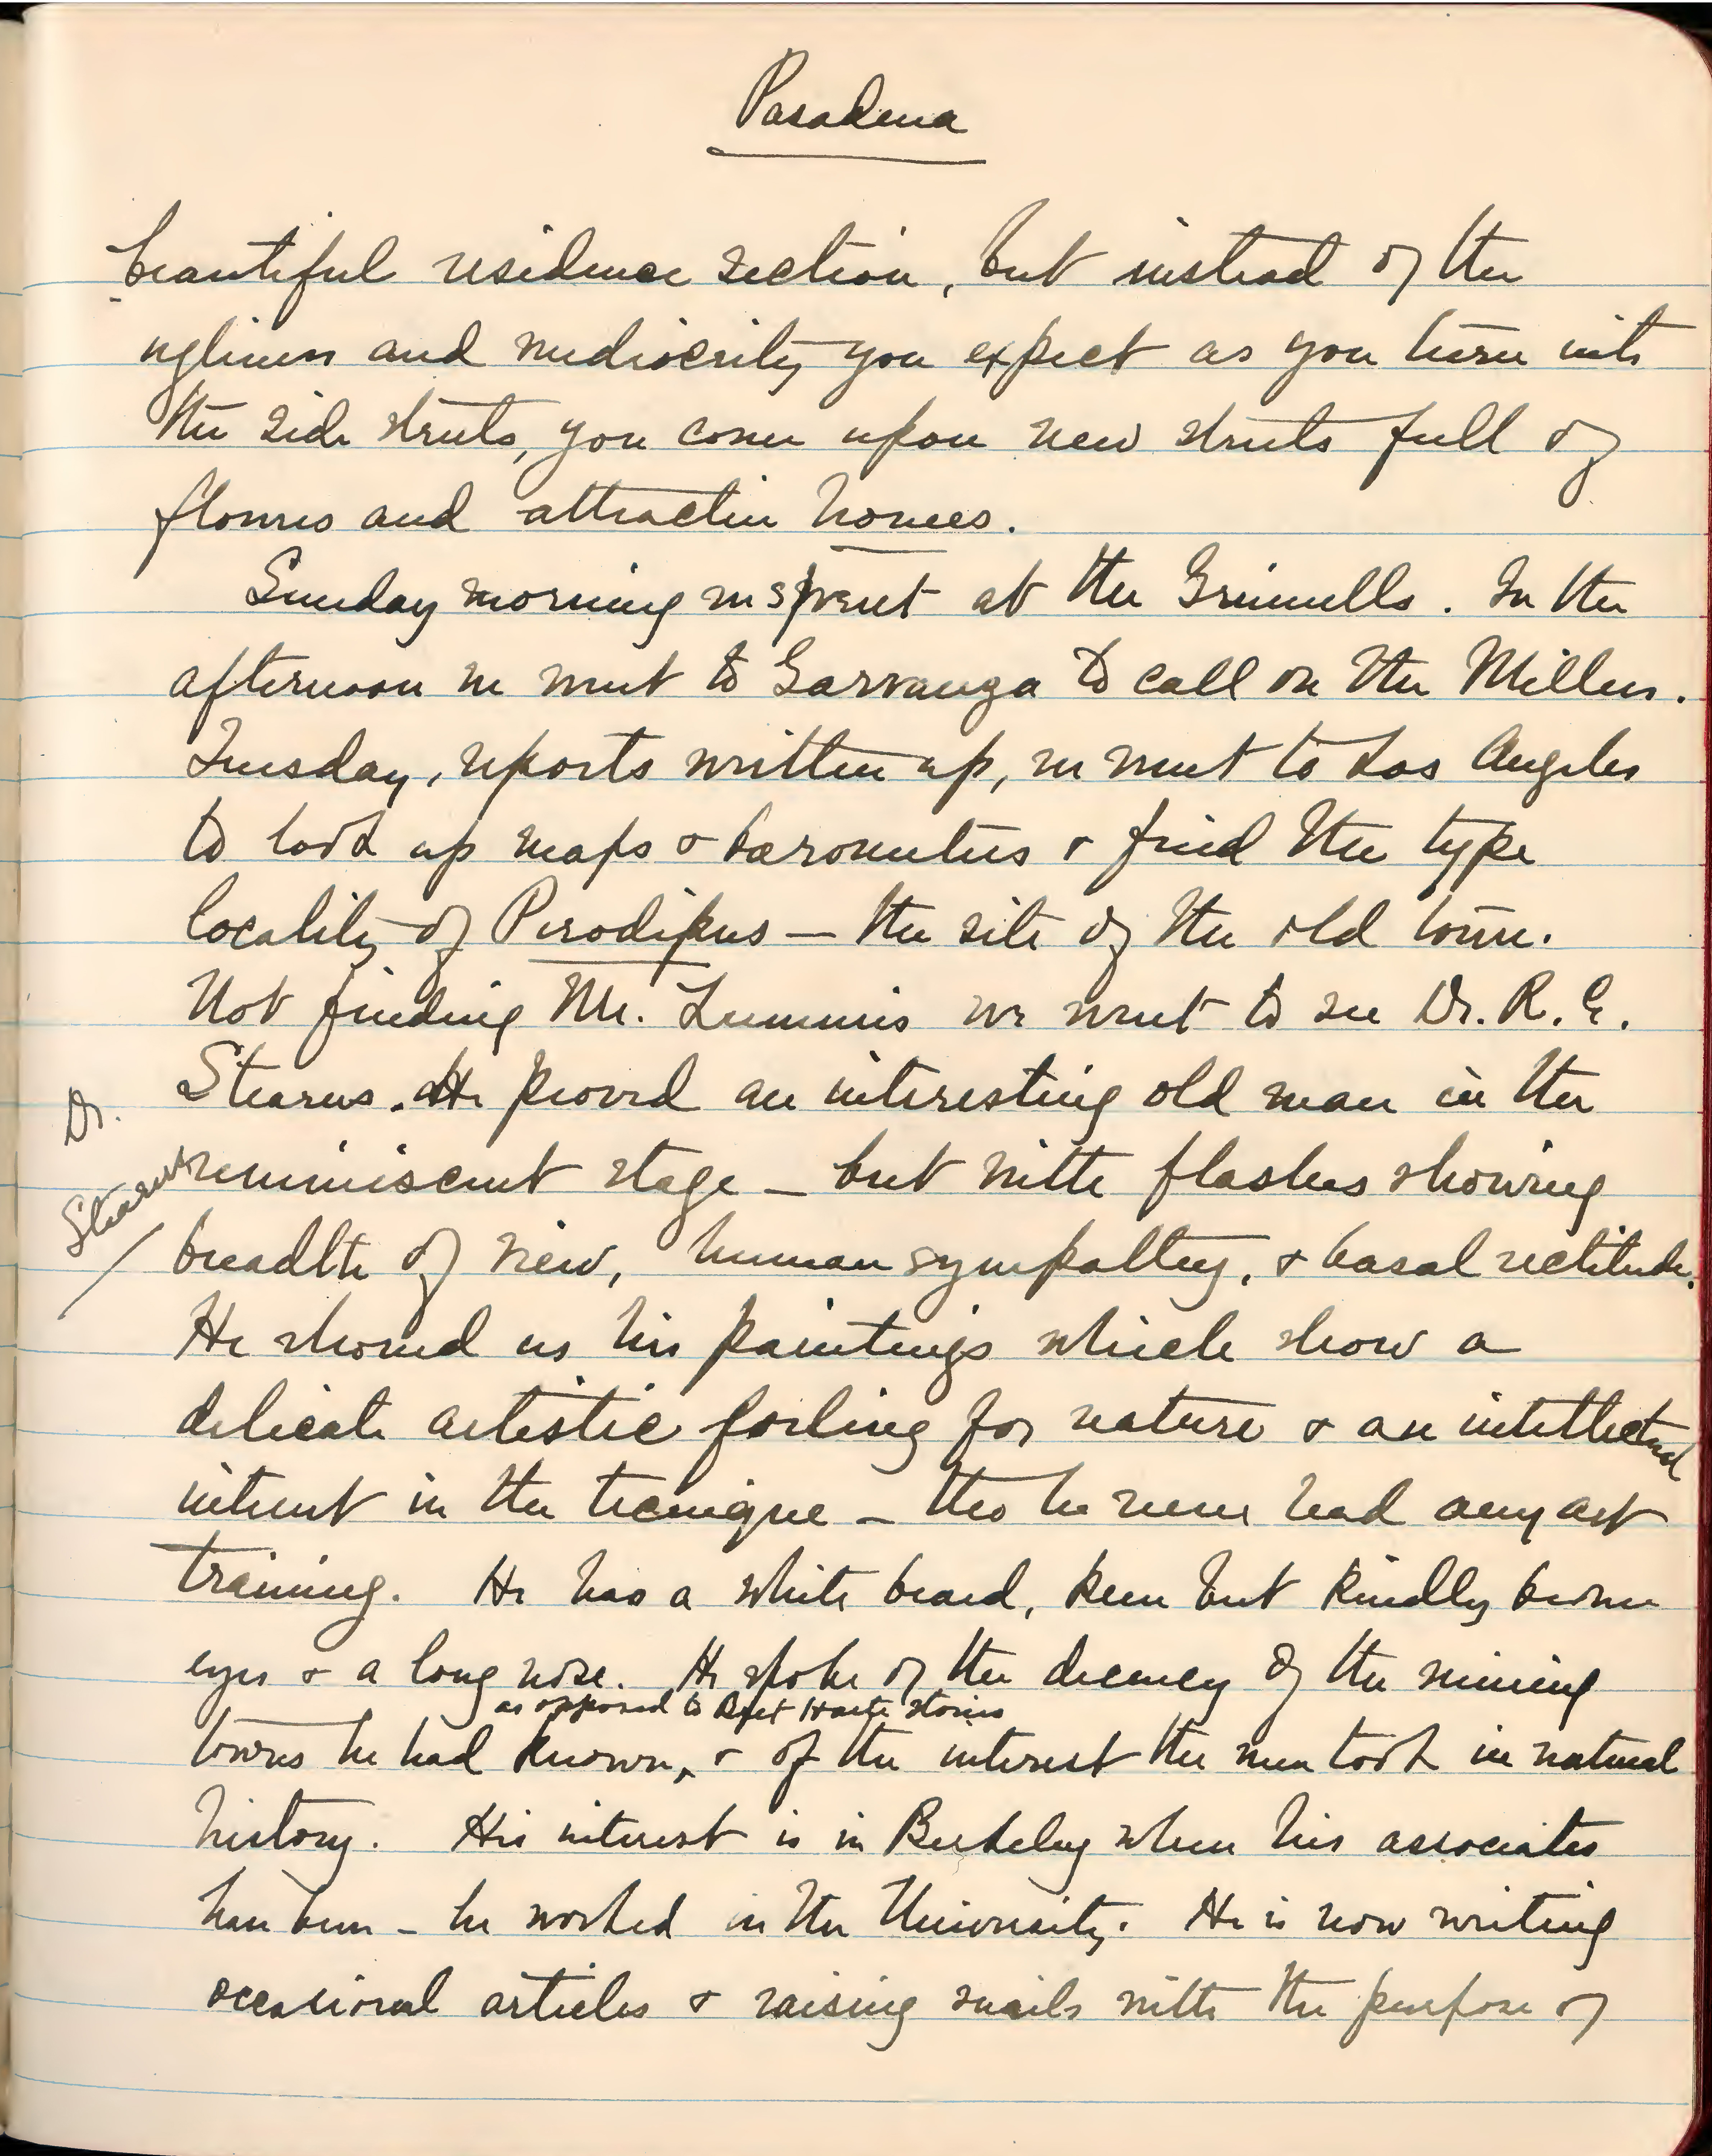 Pasadena
beautiful residence section, but instead of the
ugliness and mediocrity you expect as you turn into
the side streets, you come upon new streets full of
flowers and attractive homes.
Sunday morning we spent at the Grinnells. In the
afternoon we went to Garvanza to call on the Millers.
Tuesday, reports written up, we went to Los Angeles
to look up maps & barometers & find the type
locality of Perodipus — the site of the old town.
Not finding Mr. Lummis we went to see Dr. R. E.
Stearns. He proved an interesting old man in the
Dr.
Stearns
reminiscent stage — but with flashes showing
breadth of view, human sympathy, & basal rectitude.
He showed us his paintings which show a
delicate artistic feeling for nature & an intellectual
interest in the tecnique — tho he never had any art
training. He has a white beard, keen but kindly brown
eyes & a long nose. He spoke of the decency of the mining
as opposed to Bret Harte stories
towns he had known, & of the interest the men took in natural
history. His interest is in Berkeley where his associates
have been — he worked in the University. He is now writing
occasional articles & raising snails with the purpose of